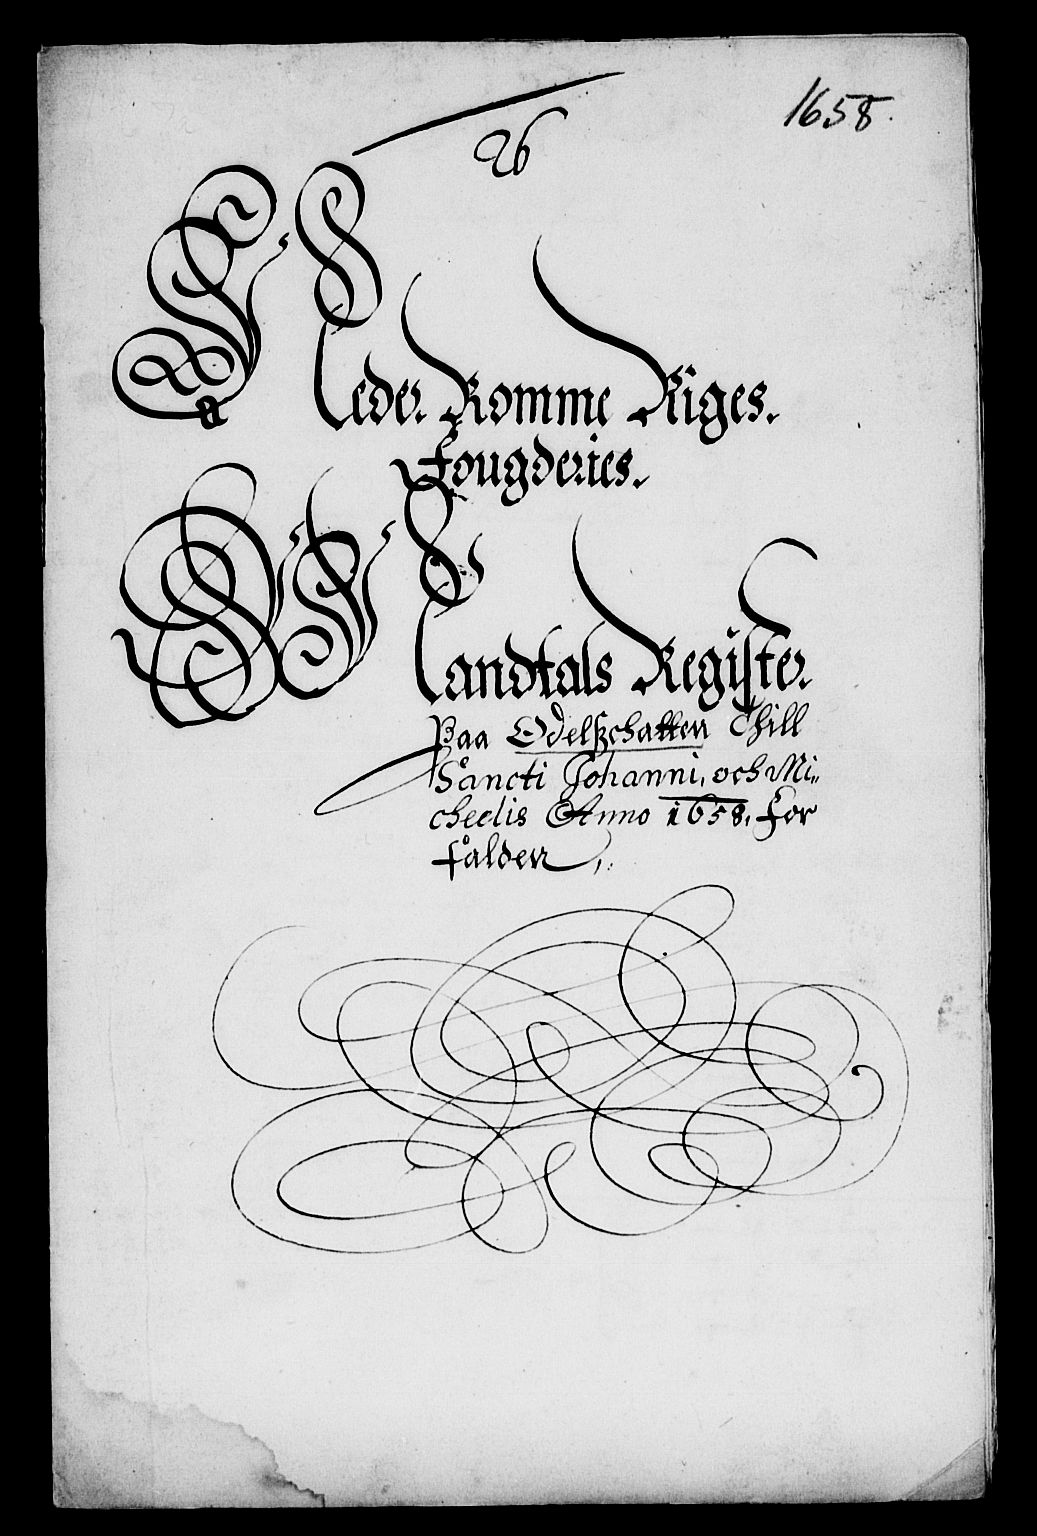 1658.
26
Neder Romme Riges.
Fougderies.
Mandtals Register
Paa Odelsschatten Thill
Sancti Johanni, och Mi„
chaelis Anno 1658. For
falden ,.